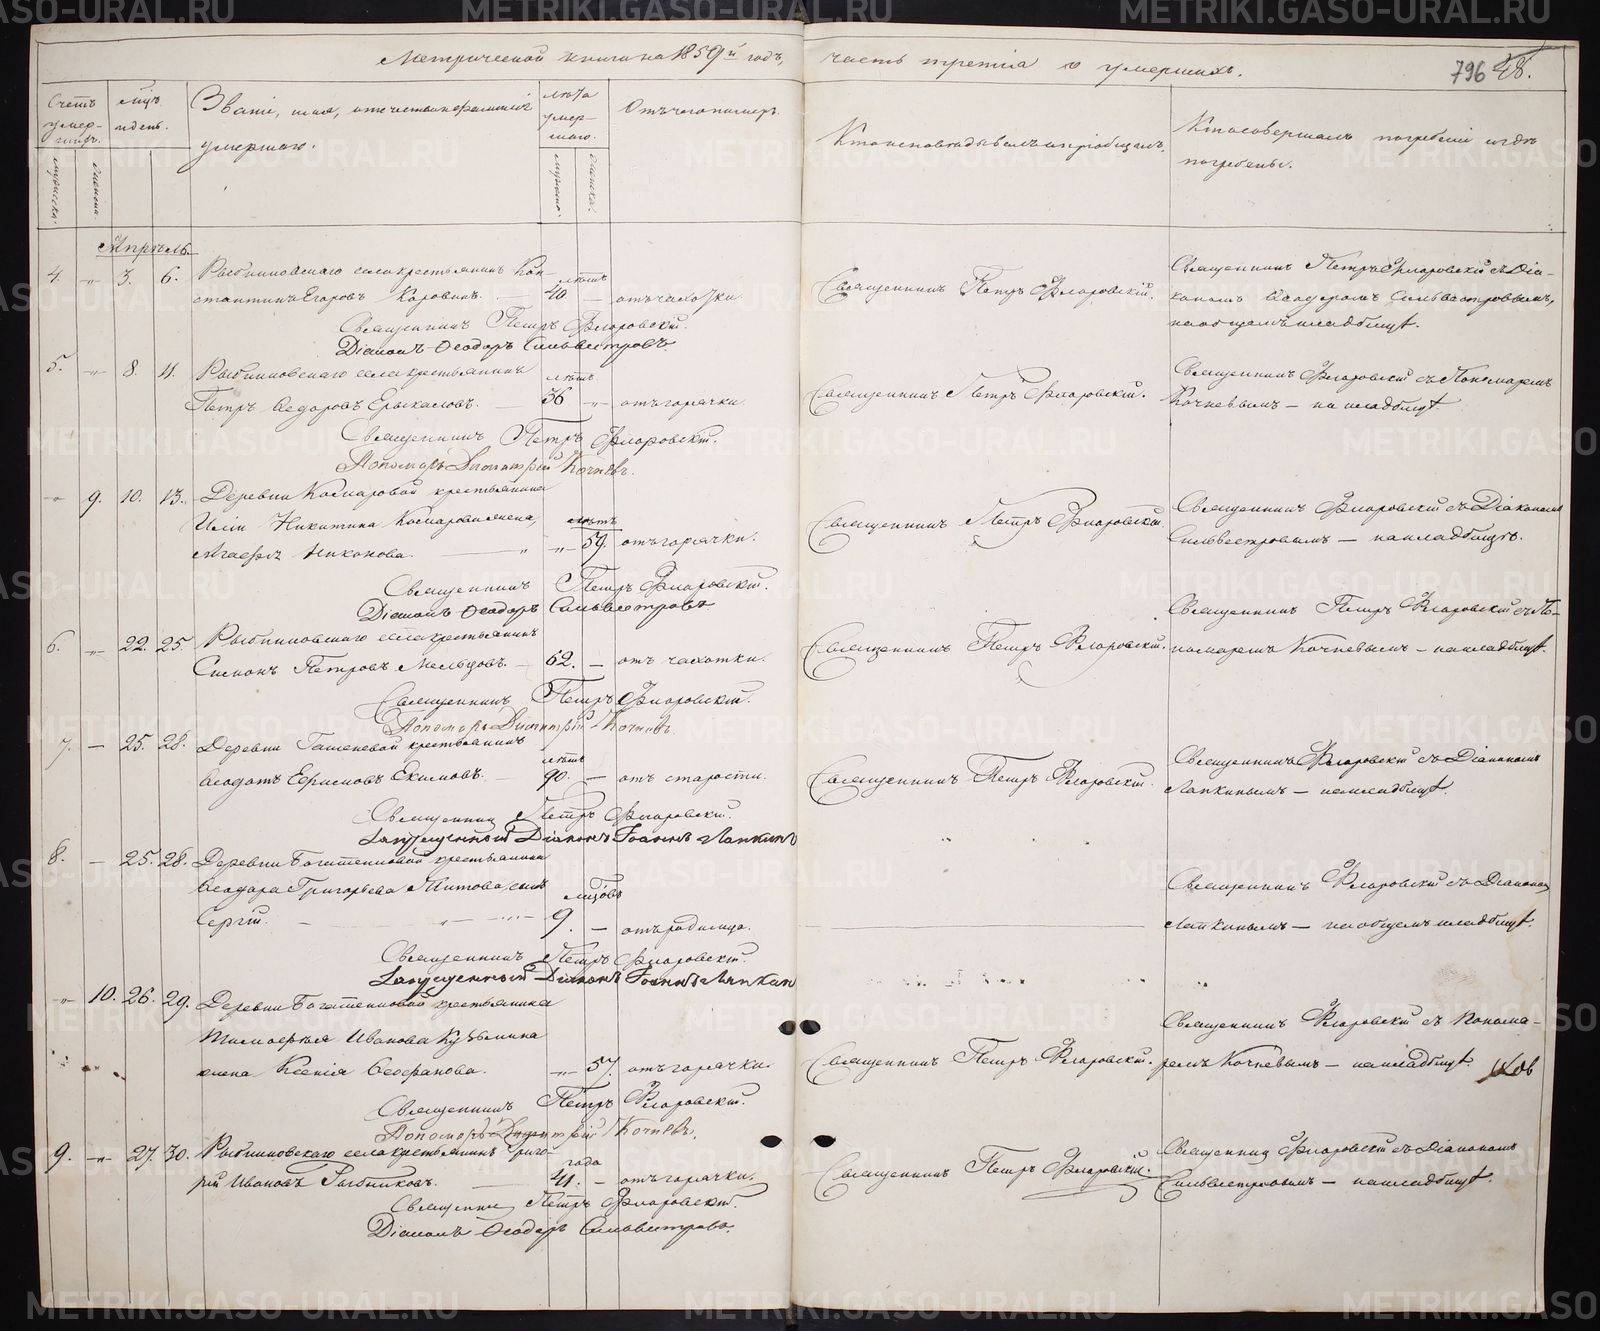 Метрической книги на 1859й годъ, часть третія о умершихъ.
796 48.
Счетъ умер-шихъ.
Мѣц. и день.
Званіе, имя, отечество и фамилія умершаго.
лѣта умер-шаго.
Отъ чего померъ.
Кто исповѣдывалъ и пріобщалъ.
Кто совершалъ погребеніе и гдѣ погребены.
мужеска.
женска.
мужеска.
женска.
Апрѣль.
4. „ 3. 6. Рыбниковскаго села крестьянинъ Кон-
стантинъ Егоровъ Коровинъ. лѣтъ 40 — отъ чахотки.
Священникъ Петръ Флоровскій.
Священникъ Петръ Флоровскій съ Діа-
кономъ Ѳеодоромъ Сильвестровымъ,
на общемъ кладбищѣ.
Священникъ Петръ Флоровскій.
Діаконъ Ѳеодоръ Сильвестровъ.
5. „ 8. 11. Рыбниковскаго села крестьянинъ
Петръ Ѳедоровъ Ерыкаловъ. лѣтъ 36 „ отъ горячки.
Священникъ Петръ Флоровскій.
Священникъ Флоровскій съ Пономаремъ
Кочневымъ — на кладбищѣ.
Священникъ Петръ Флоровскій.
Пономарь Димитрій Кочневъ.
„ 9. 10. 13. Деревни Комаровой крестьянина
Иліи Никитина Комарова жена,
Агафья Никонова. „ лѣтъ 59. отъ горячки.
Священникъ Петръ Флоровскій.
Священникъ Флоровскій съ Діакономъ
Сильвестровымъ — на кладбищѣ.
Священникъ Петръ Флоровскій.
Діаконъ Ѳеодоръ Сильвестровъ
6. „ 22. 25. Рыбниковскаго села крестьянинъ
Симонъ Петровъ Мельцовъ. — 62. — отъ чахотки.
Священникъ Петръ Флоровскій.
Священникъ Петръ Флоровскій съ По-
номаремъ Кочневымъ — на кладбищѣ.
Священникъ Петръ Флоровскій.
Пономарь Димитрій Кочневъ.
7. — 25. 28. Деревни Гашеневой крестьянинъ
Ѳеодотъ Ефимовъ Екимовъ. лѣтъ 90. — отъ старости.
Священникъ Петръ Флоровскій.
Священникъ Флоровскій съ Діакономъ
Лапкинымъ — на кладбищѣ.
Священникъ Петръ Флоровскій.
Запрещенный Діаконъ Іоаннъ Лапкинъ
8. — 25. 28. Деревни Богатенковой крестьянина
Ѳеодора Григорьева Титова, сынъ
Сергій. мѣцовъ 9. — отъ родимца.
Священникъ Флоровскій съ Діакономъ
Лапкинымъ — на общемъ кладбищѣ.
Священникъ Петръ Флоровскій.
Запрещенный Діаконъ Іоаннъ Лапкинъ
„ 10. 26. 29. Деревни Богатенковой крестьянина
Тимоѳея Иванова Кузьмина
жена Ксенія Ѳеофанова. „ 57. отъ горячки.
Священникъ Петръ Флоровскій.
Священникъ Флоровскій съ Понома-
ремъ Кочневымъ — на кладбищѣ.
Священникъ Петръ Флоровскій.
Пономарь Димитрій Кочневъ.
9. „ 27. 30. Рыбниковскаго села крестьянинъ Григо-
рій Ивановъ Рыбниковъ. года 41. — отъ горячки.
Священникъ Петръ Флоровскій.
Священникъ Флоровскій съ Діакономъ
Сильвестровымъ — на кладбищѣ.
Священникъ Петръ Флоровскій.
Діаконъ Ѳеодоръ Сильвестровъ.
METRIKI.GASO-URAL.RU